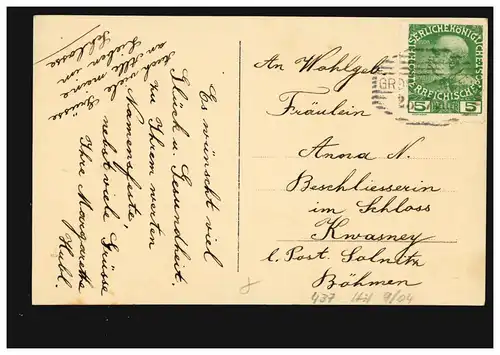 Es wünscht viel
Glück u. Gesundheit.
zu Ihrem werten
Namensfeste,
nebst viele Grüsse
Ihre Margarethe
Hubl.
Auch viele Grüsse
an Alle meine
Lieben im
Schlosse
KAISERLICHEKÖNIGLICHE
ÖSTERREICHISCHE POST
5 5
GRO
An Wohlgeb.
Fräulein
Anna N.
Beschliesserin
im Schloss
Kwasney
l. Post. Solnitz
Böhmen
437 9/04